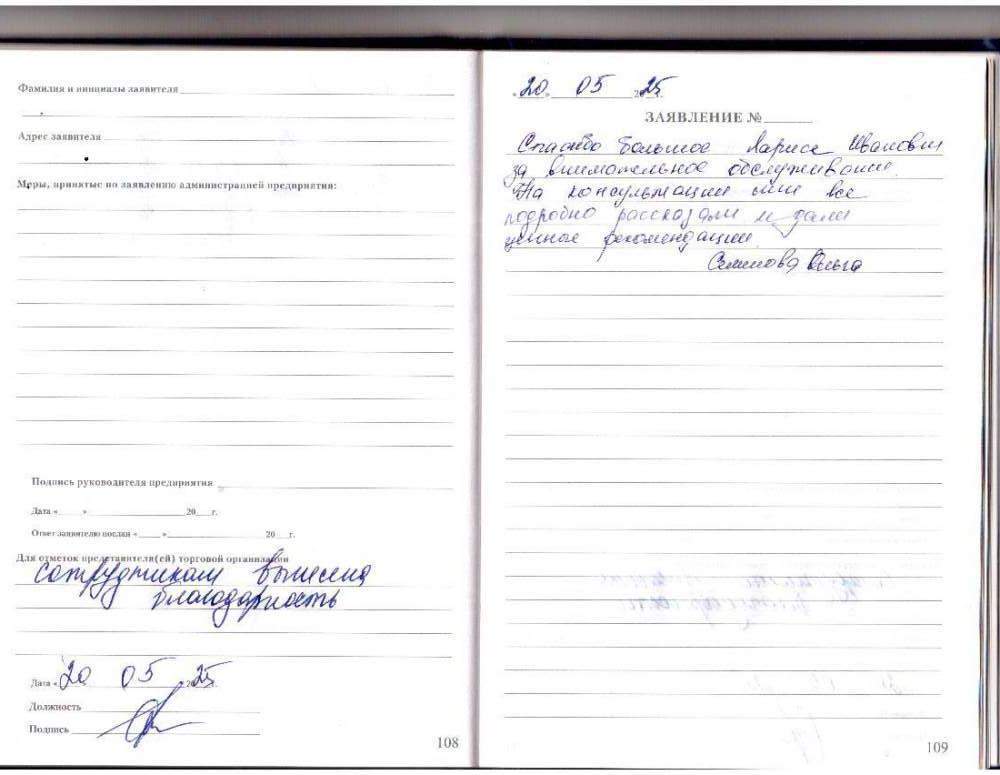 Фамилия и инициалы заявителя
Адрес заявителя
Меры, принятые по заявлению администрацией предприятия:
Подпись руководителя предприятия
Дата « » 20 г.
Ответ заявителю послан « » 20 г.
Для отметок представителя(ей) торговой организации
сотрудникам вынесена
благодарность
Дата «20 05 2025
Должность
Подпись
108
«20» 05 2025
ЗАЯВЛЕНИЕ №
Спасибо большое Ларисе Ивановн
за внимательное обслуживание.
На консультации мне все
подробно рассказали и дали
ценные рекомендации.
Ольга
109